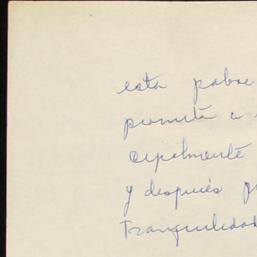 esta pobre
promete a
cipalmente
y después
Tranquilidad